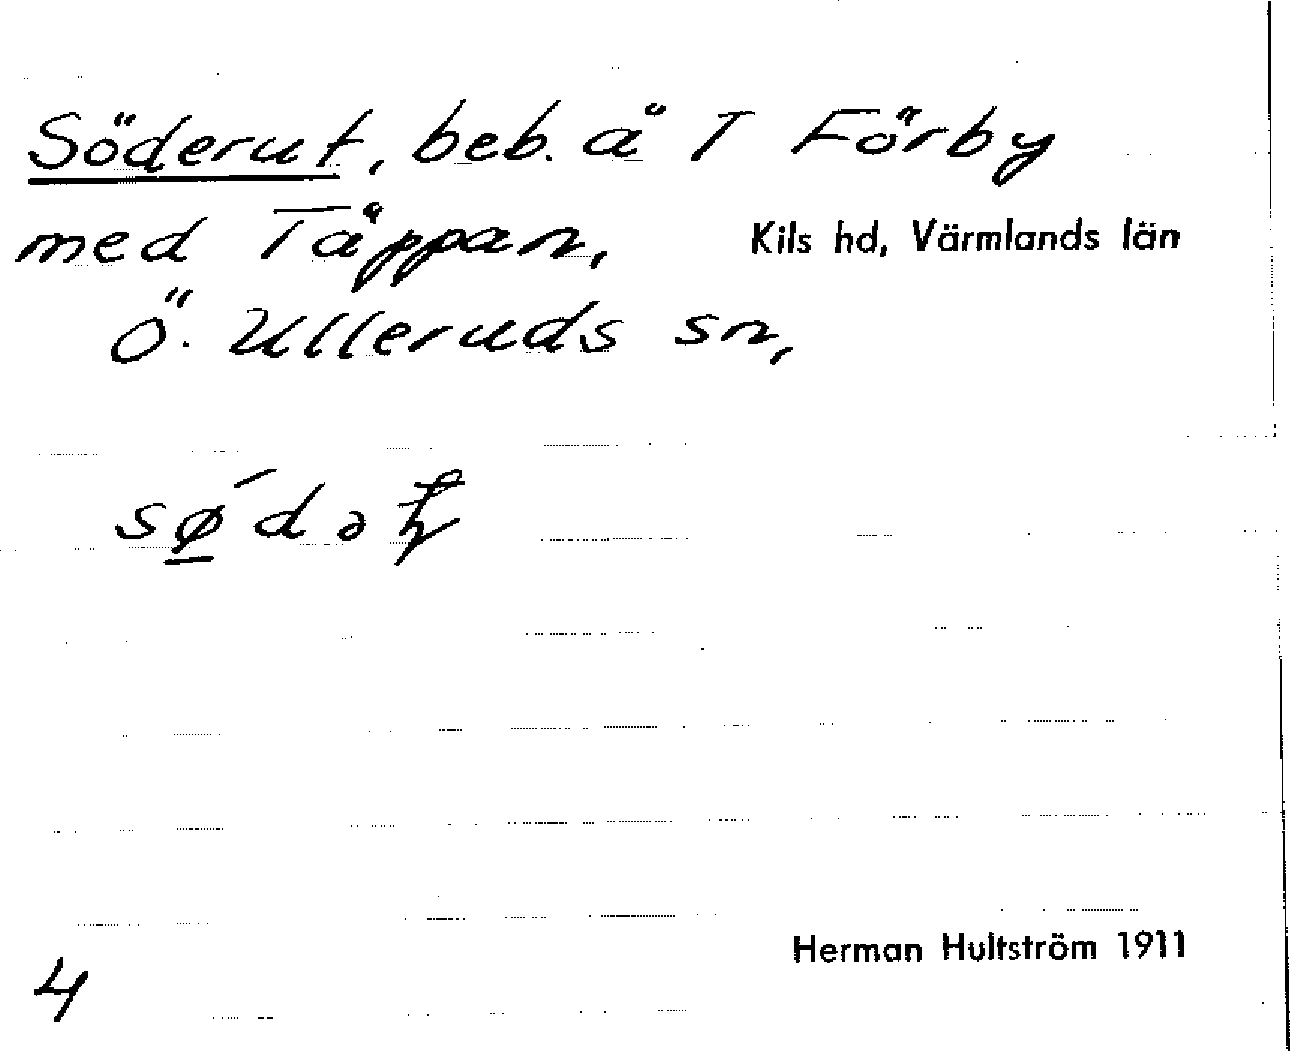 Söderut, beb. å T Förby
med Täppan,
Kils hd, Värmlands län
Ö. Ulleruds sn,
Herman Hultström 1911
4